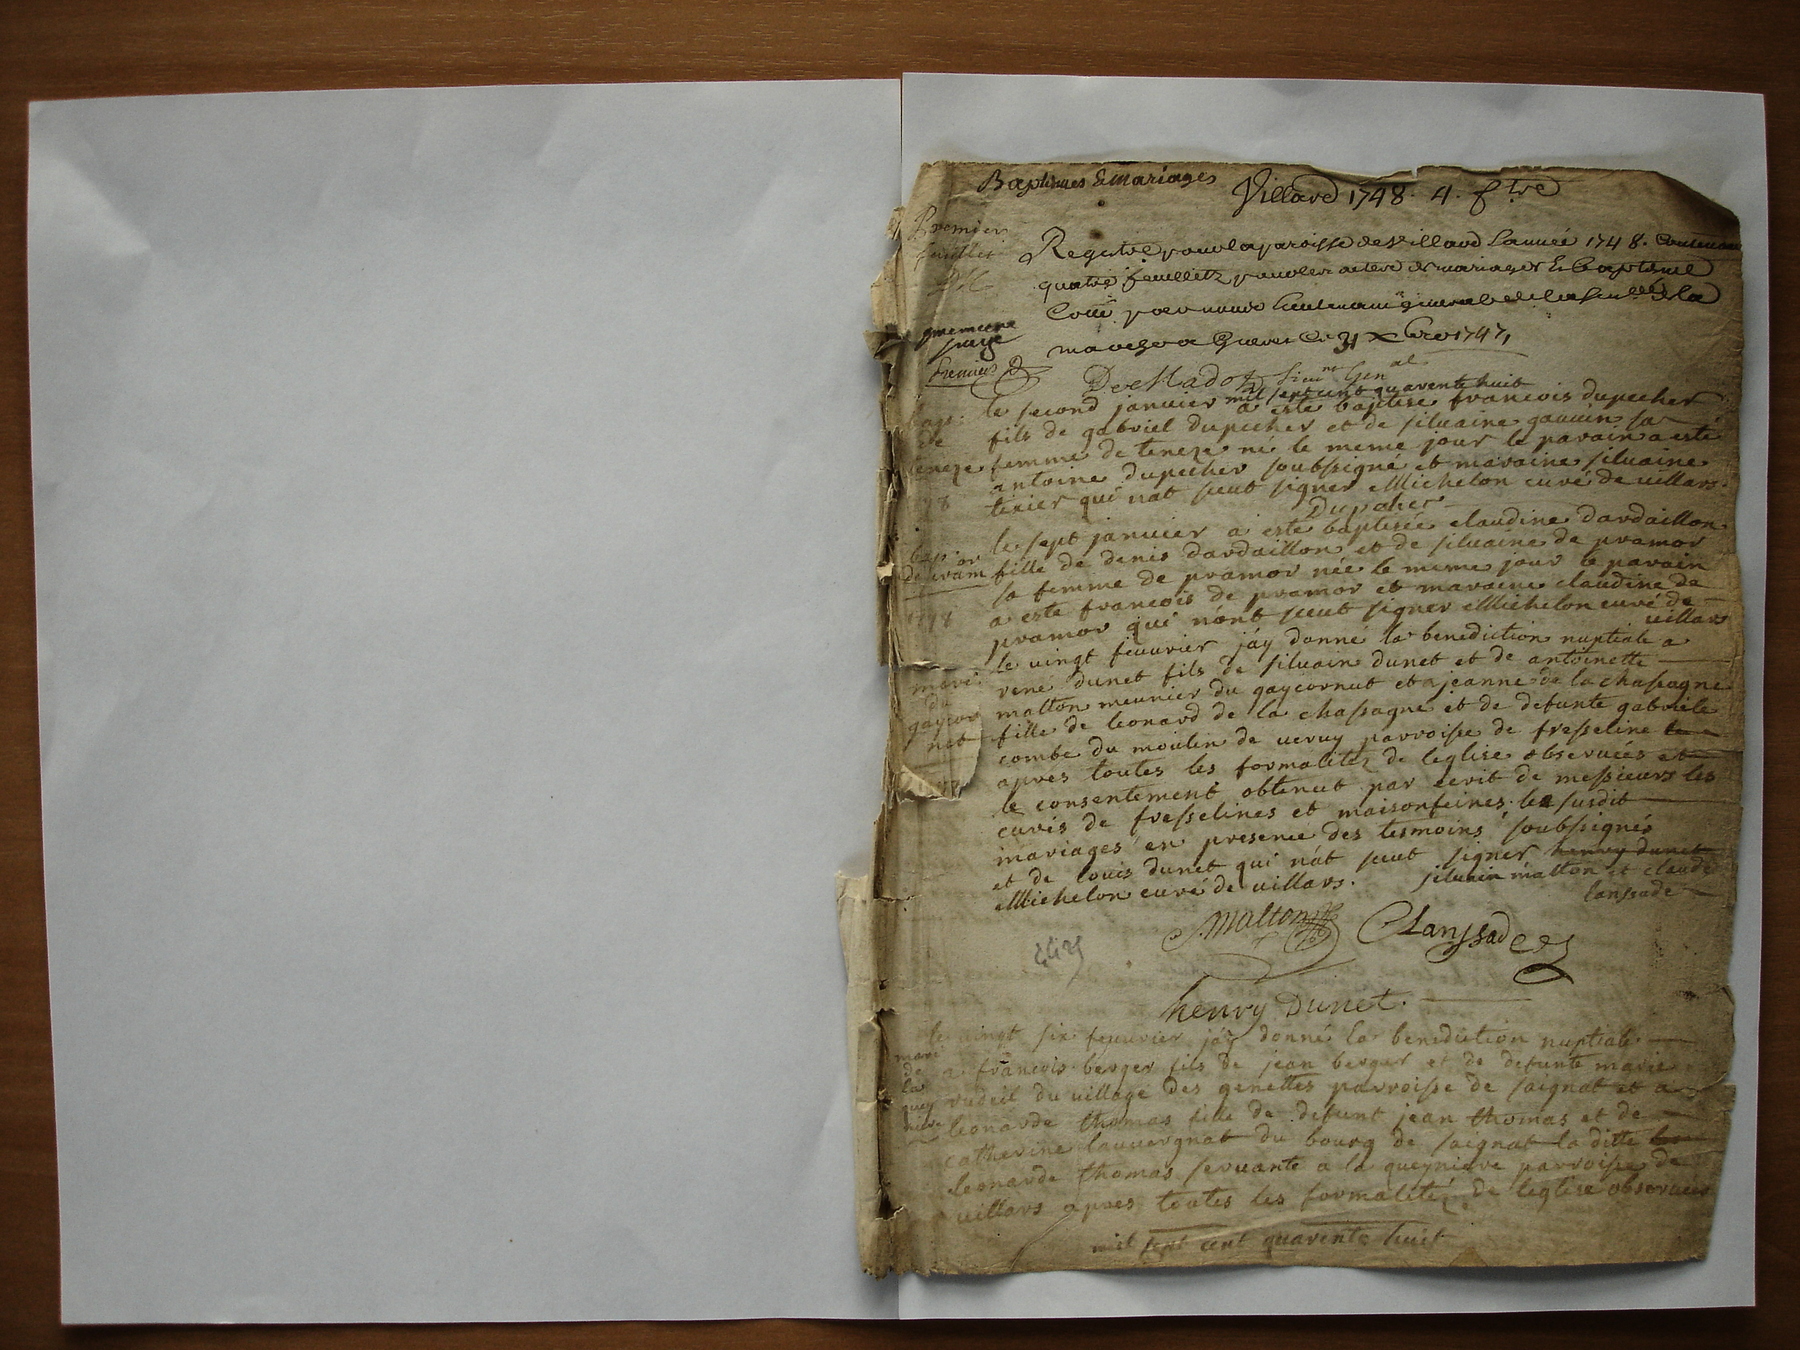 Baptesmes & mariages
Villard 1748. 4. f.tre
Premier
feuillet
Registre pour la paroisse de Villard Lannée 1748. Contenant
quatre feuilletz pour les actes de mariages & Baptesme
Cotté par nous Lieutenant general de la
marche a Gueret ce 31 Xbre 1747,
premiere
page
Lieunt Genal
mil sept cent quarente huit
bap:
de
teneze
le second janvier a este baptisé francois dupecher
fils de gabriel dupecher et de siluaine gauvin sa
femme de teneze né le meme jour le parain a esté
antoine dupecher soubssigné et maraine siluaine
texier qui nat sceut signer Michelon curé de villars.
Dupecher
bap:
de pram
or
le sept janvier a este baptisée claudine dardaillon
fille de denis dardaillon et de siluaine de pramor
sa femme de pramor née le meme jour le parain
a este francois de pramor et maraine claudine de
pramor qui nont sceut signer Michelon curé de
villars
mari:
du
gaycor
nut
le vingt feuurier jáy donné la benediction nuptiale a
rené dunet fils de siluain dunet et de antoinette
matton meunier du gaycornut et a jeanne de la chassagne
fille de leonard de la chassagne et de defunte gabriele
combe du moulin de uervy parroisse de fresseline
apres toutes les formalitez de leglise obseruées et
le consentement obtenut par ecrit de messieurs les
curés de fresselines et maisonfeines le susdit
mariages en presence des tesmoins soubssignés
et de louis dunet qui nat sceut signer henry dunet
siluain matton et claude
Michelon curé de villars.
lanssade
S. Matton
C Lanssade
henry Dunet.
mari
de
la
quey
niere
le vingt six feuurier jáy donné la benediction nuptiale
a francois berger fils de jean berger et de defunte marie
rudeil du village des genettes parroisse de saignat et a
leonarde thomas fille de defunt jean thomas et de
catherine lauuergnat du bourg de saignat la ditte
leonarde thomas seruante a la queyniere parroisse de
villars apres toutes les formalitéz de leglise obseruées
mil sept cent quarente huit